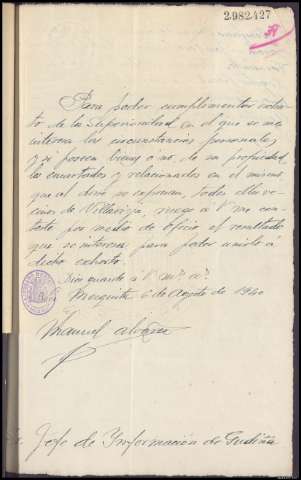 2.982.427
Para poder cumplimentar
de la Superioridad en el que se me
interesa las circunstancias personales
y si poseen bienes o no, de su propiedad
los encartados y relacionados en el mismo
que al dorso se expresan, todos ellos ve-
cinos de ruego a V. me con-
teste por medio de oficio el resultado
que se interesa para poder unirlo a
dicho exhorto.
Dios guarde a V. m.s a.s
6 de Agosto de 1940
Manuel Alvarez
Jefe de Información de